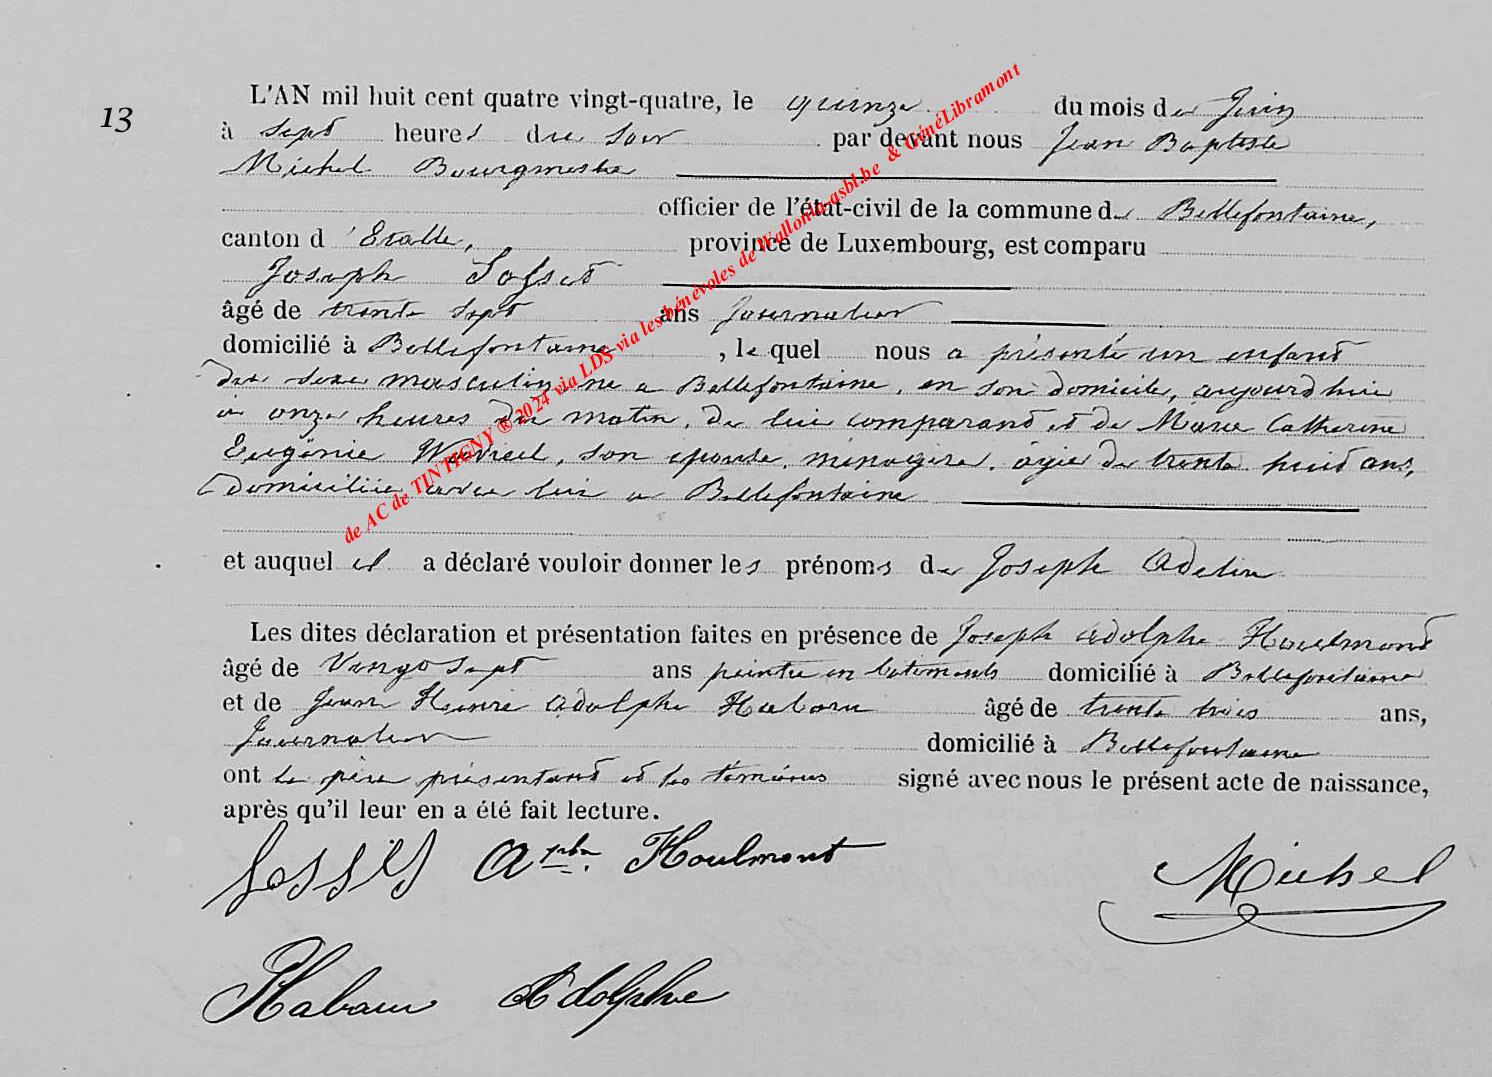 13
L'AN mil huit cent quatre vingt-quatre, le quinze du mois de Juin
à sept heures du soir par devant nous Jean Baptiste
Michel Bourgmestre
officier de l'état-civil de la commune de Bellefontaine,
canton d'Etalle, province de Luxembourg, est comparu
Joseph
âgé de trente sept ans Journalier
domicilié à Bellefontaine, lequel nous a présenté un enfant
du sexe masculin, né à Bellefontaine, en son domicile, aujourd'hui
à onze heures du matin, de lui comparant et de Marie Catherine
Eugénie son épouse, ménagère, âgée de trente huit ans,
domiciliée avec lui à Bellefontaine
et auquel il a déclaré vouloir donner les prénoms de Joseph Adelin
Les dites déclaration et présentation faites en présence de Joseph Adolphe Houlmont
âgé de Vingt sept ans peintre en batiments domicilié à Bellefontaine
et de Jean Henri Adolphe Habaru âgé de trente trois ans,
Journalier domicilié à Bellefontaine
ont le père présentant et les témoins signé avec nous le présent acte de naissance,
après qu'il leur en a été fait lecture.
Houlmont
Michel
Habaru Adolphe
de AC de TINTIGNY ®2024 via LDS via les bénévoles de Wallonia-asbl.be & GénéLibramont